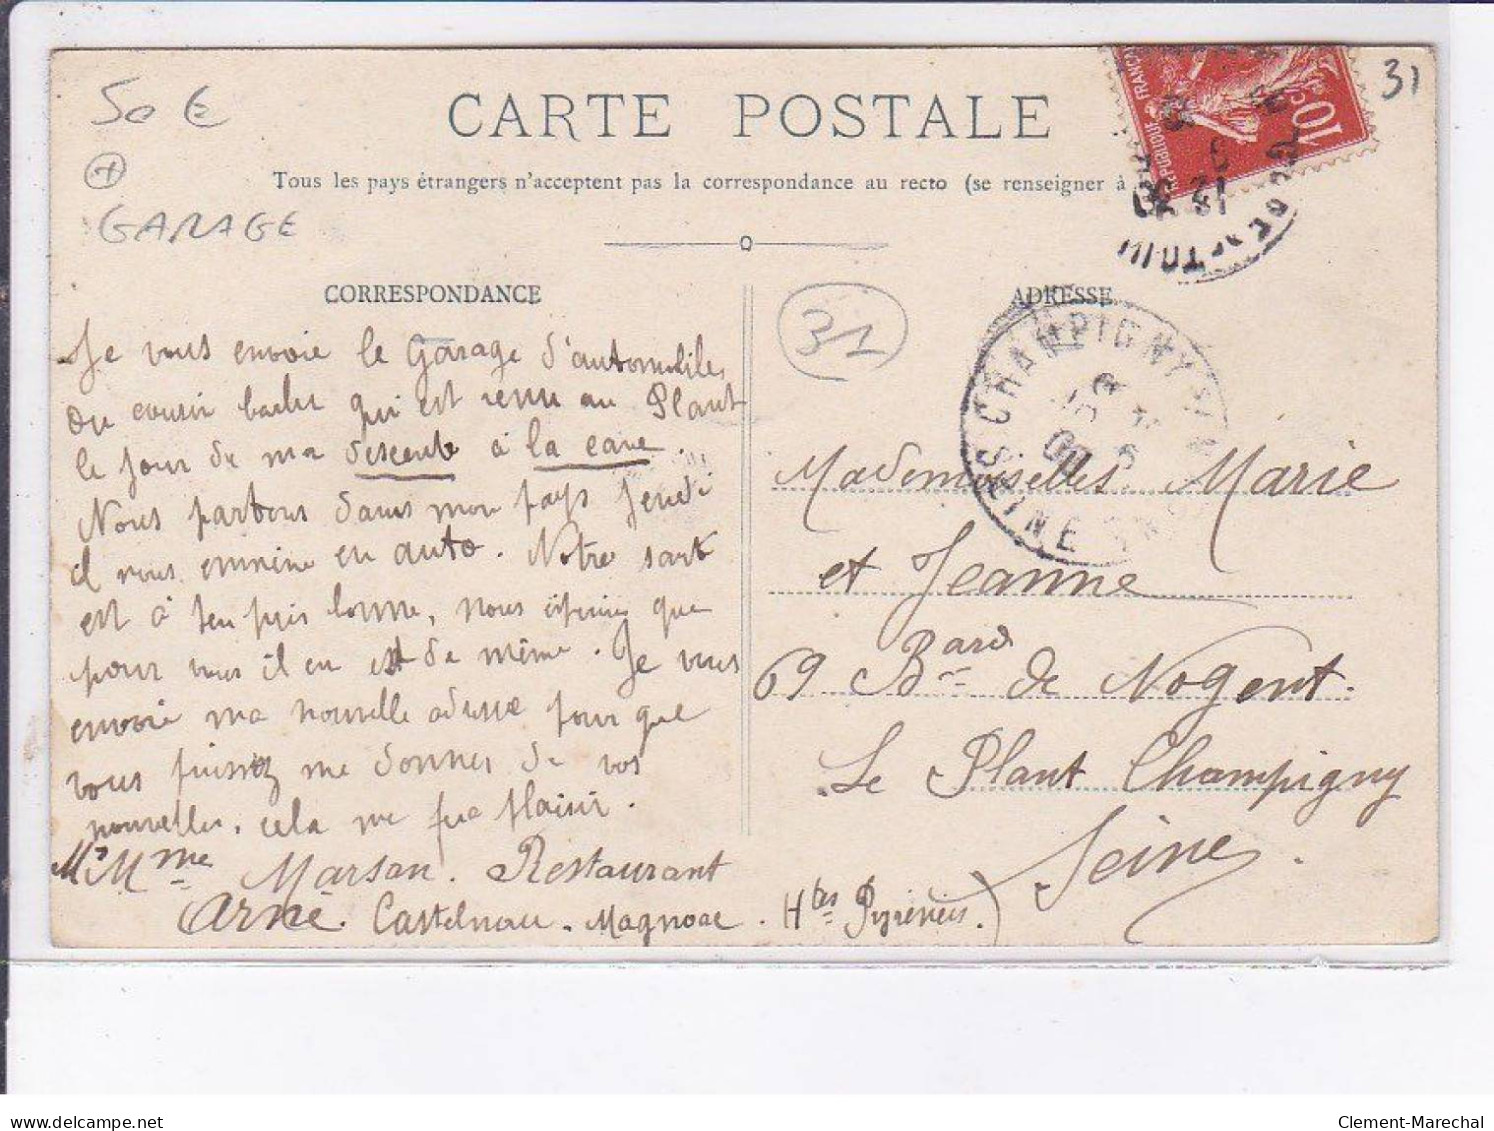 50 E
GARAGE
31
CARTE POSTALE
Tous les pays étrangers n'acceptent pas la correspondance au recto (se renseigner à
FRANÇAISE
10 c.
CORRESPONDANCE
ADRESSE
31
CHAMPIGNY
SEINE
Je vous envoie le Garage d'automobiles
du cousin qui est venu au Plant
le jour de ma descente à la cave.
Nous partons dans mon pays Jeudi
il nous emmène en auto. Notre santé
est à peu près bonne, nous espérons que
pour vous il en est de même. Je vous
envoie ma nouvelle adresse pour que
vous puissiez me donner de vos
nouvelles, cela me fera plaisir.
Mr Mme Marsan. Restaurant
Arné. Castelnau-Magnoac. Htes Pyrénées.)
Mademoiselles Marie
et Jeanne
69 Bard de Nogent.
Le Plant Champigny
Seine.
Clement-Marechal
delcampe.net